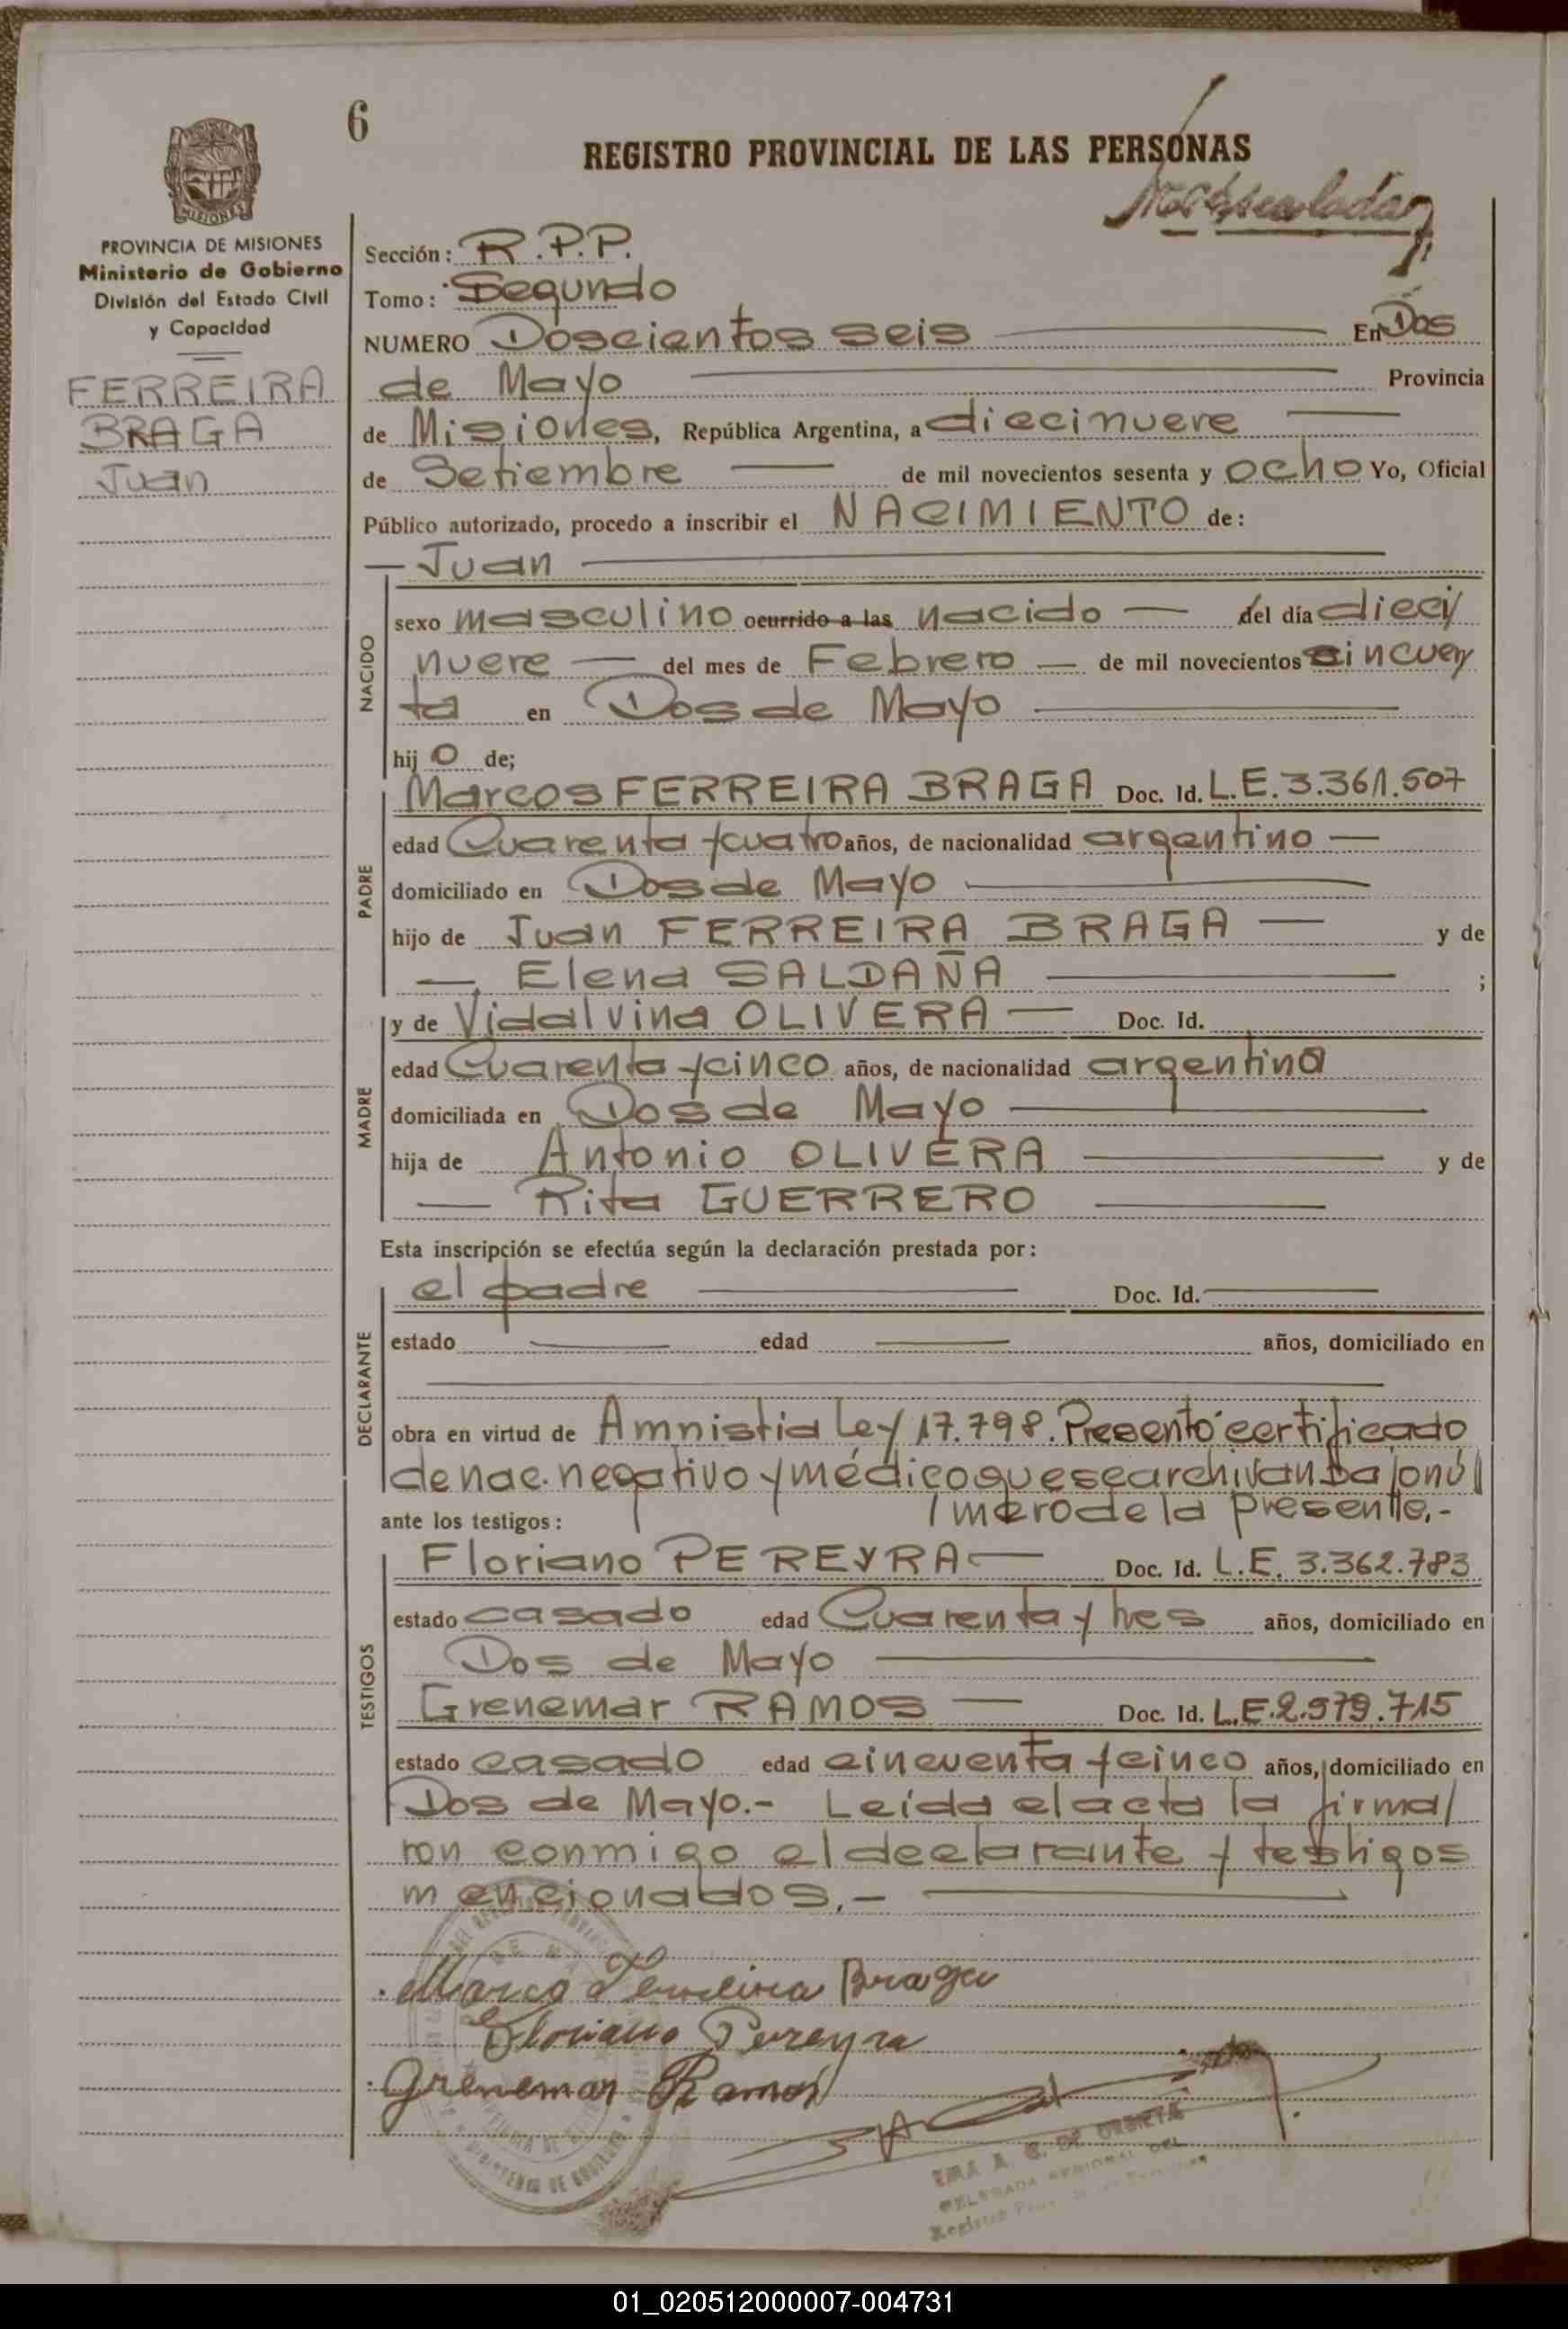 6
REGISTRO PROVINCIAL DE LAS PERSONAS
MISIONES
PROVINCIA DE MISIONES
Ministerio de Gobierno
División del Estado Civil
y Capacidad
FERREIRA
BRAGA
Juan
Sección: R.P.P.
Tomo: Segundo
NUMERO Doscientos seis En Dos
de Mayo Provincia
de Misiones, República Argentina, a diecinueve
de Setiembre de mil novecientos sesenta y ocho Yo, Oficial
Público autorizado, procedo a inscribir el NACIMIENTO de:
Juan
NACIDO
sexo masculino ocurrido a las nacido del día dieci/
nueve del mes de Febrero de mil novecientos cincuen/
ta en Dos de Mayo
hij o de;
PADRE
Marcos FERREIRA BRAGA Doc. Id. L.E. 3.361.507
edad Cuarenta y cuatro años, de nacionalidad argentino
domiciliado en Dos de Mayo
hijo de Juan FERREIRA BRAGA y de
Elena SALDAÑA ;
MADRE
y de Vidalvina OLIVERA Doc. Id.
edad Cuarenta y cinco años, de nacionalidad argentina
domiciliada en Dos de Mayo
hija de Antonio OLIVERA y de
Rita GUERRERO
Esta inscripción se efectúa según la declaración prestada por:
DECLARANTE
el padre Doc. Id.
estado edad años, domiciliado en
obra en virtud de Amnistia Ley 17.798. Presentó certificado
de nac. negativo y médico que se archivan bajo nú//
ante los testigos: / mero de la presente.-
TESTIGOS
Floriano PEREYRA Doc. Id. L.E. 3.362.783
estado casado edad Cuarenta y tres años, domiciliado en
Dos de Mayo
Grenemar RAMOS Doc. Id. L.E. 2.979.715
estado casado edad cincuenta y cinco años, domiciliado en
Dos de Mayo.- Leída el acta la firma/
ron conmigo el declarante y testigos
mencionados.-
Marco Ferreira Braga
Floriano Pereyra
Grenemar Ramos
EMA A. G. DE URBIETA
DELEGADA REGIONAL DEL
01_020512000007-004731